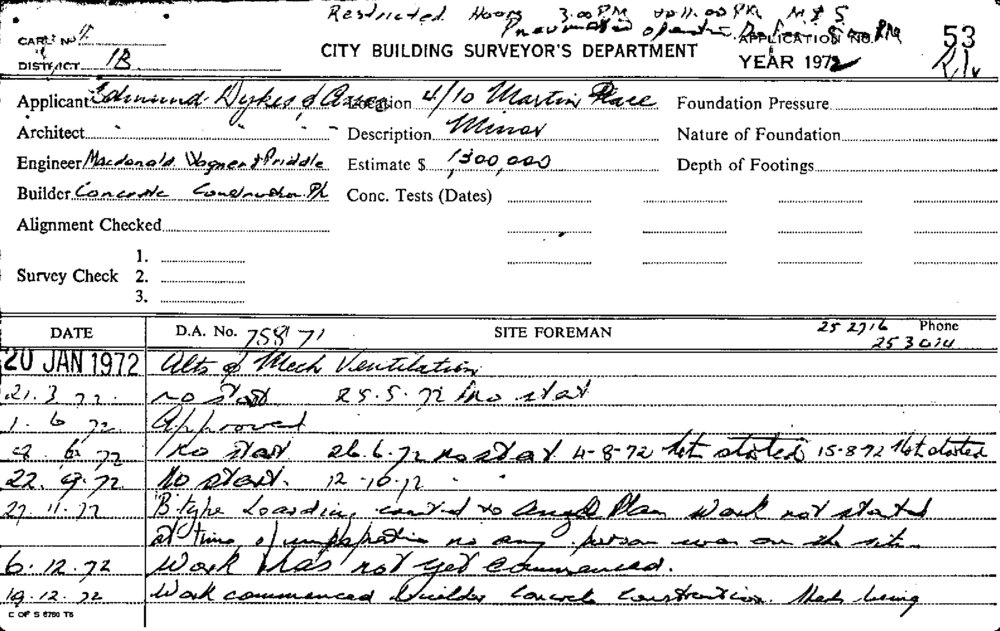 Restricted Hours 3.00 PM to 11.00 PM M & S
CARD No 4. Pneumatic operation APPLICATION No. 53
DISTRICT 1B CITY BUILDING SURVEYOR'S DEPARTMENT YEAR 1972
Applicant Edmund Dykes & Assoc Location 4/10 Martin Place Foundation Pressure
Architect " " " Description Minor Nature of Foundation
Engineer Macdonald Wagner & Priddle Estimate $ 1300,000 Depth of Footings
Builder Concrete Construction P/L Conc. Tests (Dates)
Alignment Checked
1.
Survey Check 2.
3.
DATE D.A. No. 758 71 SITE FOREMAN 25 2716 Phone
25 3014
20 JAN 1972 Alts & Mech Ventilation
21. 3 72. no start 25.5.72 no start
1. 6 72 Approved
9. 6. 72 no start 26.6.72 no start 4-8-72 Not started 15-8-72 Not started
22. 9. 72. No start. 12-10-72 " "
27. 11. 72 B. type Hoarding Plan Work not started
at time of no any person was on the site
6. 12. 72 Work has not yet commenced.
19. 12. 72 Work commenced builder Concrete Construction. being
C OF S 6750 T5